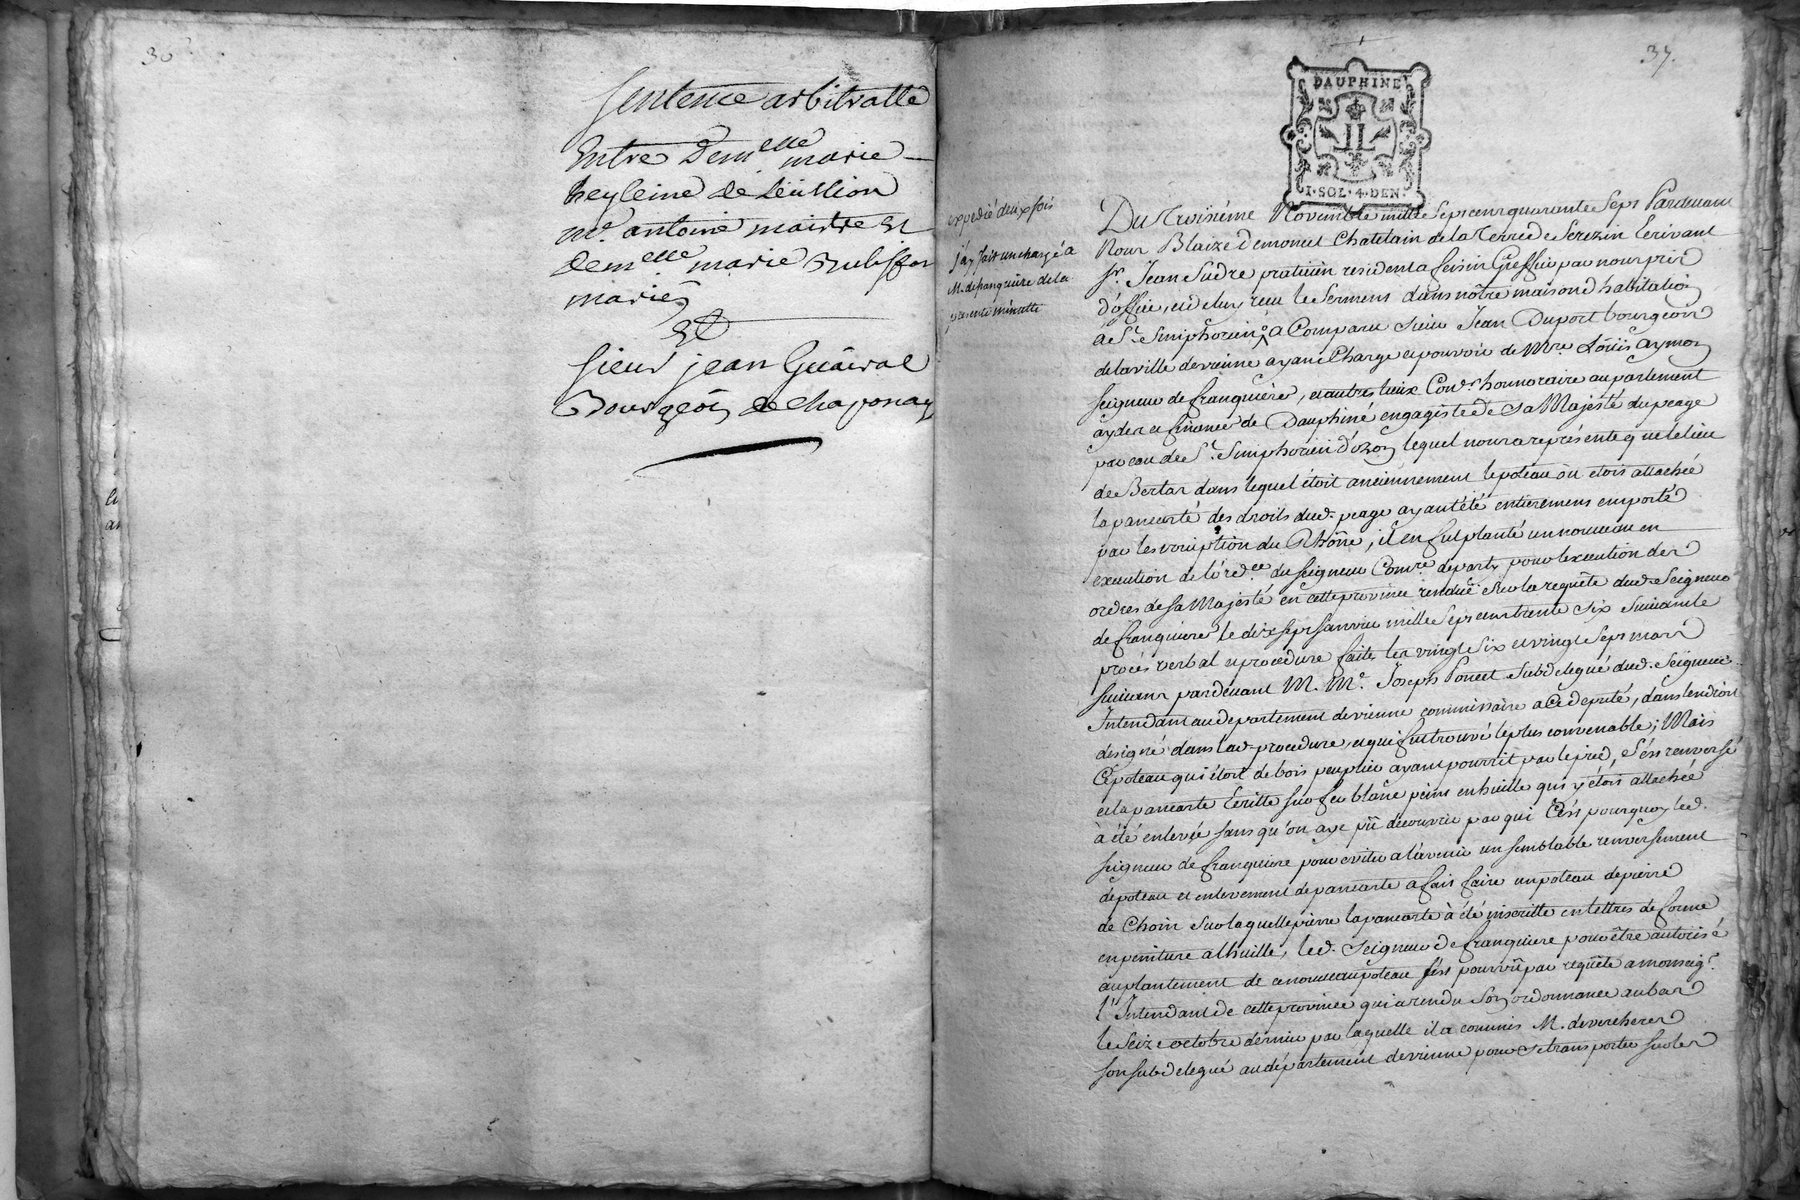 30
Sentence arbitralle
Entre Dem.elle marie
heyleine de
m.e antoine maistre Et
demelle marie
mariés
Et
sieur jean Guäival
Bourgeois de Chaponay
37.
DAUPHINE
1·SOL·4·DEN.
expedié deux fois
j'ay fait un chargé a
M. defranquiere de la
presente minutte
Du Troisiéme Novembre mille Sept cent quarante Sept Pardevant
Nous Blaize Demoncel Chatelain de la Terre de Serezin Ecrivant
sr. Jean Sudre praticien resident a feisin Greffier par nous pris
d'office, et de luy receu le Serment dans nôtre maison d'habitation
a St. Simphorien; a Comparu sieur Jean Duport bourgeois
de la ville de vienne ayant Charge et pouvoir de Mre. Loüis Aymon
seigneur de franquieres, et autres lieux Coner. honnoraire au parlement
aydes et finances de Dauphiné engagiste de sa Majesté du peage
par eau de St. Simphorien d'ozon lequel nous a représenté que le lieu
de Bertar dans lequel étoit anciennement le poteau où étois attachée
la pancarté des droits dud. peage ayant été entierement emporté
par les corruption du Rhône, il en fut planté un nouveau en
execution de l'ord.ce du seigneur Comre. départy pour l'execution des
ordres de sa Majesté en cette province renduë sur la requête dud. Seigneur
de franquiere le dix sept Janvier mille Sept cent trente six suivant le
procés verbal et procedure faite les vingt six et vingt Sept mars
suivans pardevant M. Me. Joseph Poncet Subdelegué dud. Seigneur
Intendant au departement de vienne commissaire a ce deputé, dans lendroit
designé dans lad. procedure, et qui fut trouvé le plus convenable; Mais
Ce poteau qui étoit de bois peuplier ayant pourrit par le pied, s'est renversé
et la pancarte Ecritte sur feu blanc peint en huille qui y étois attachée
à été enlevée sans qu'on aye pû découvrir par qui C'est pourquoy led.
seigneur de franquiere pour eviter a l'avenir un semblable renversement
de poteau et enlevement de pancarte a fait faire un poteau de pierre
de Choin sur laquelle pierre la pancarte à été inscritte en lettres de forme
en peinture a lhuille, led. seigneur de franquiere pour être autorisé
au plantement de ce nouveau poteau s'est pourvû par requête a monseigr.
l'Intendant de cette province qui a rendu Son ordonnance au bas
le Seize octobre dernier par laquelle il a commis M. de vercheres
son subdelegué au département de vienne pour se transporter sur les